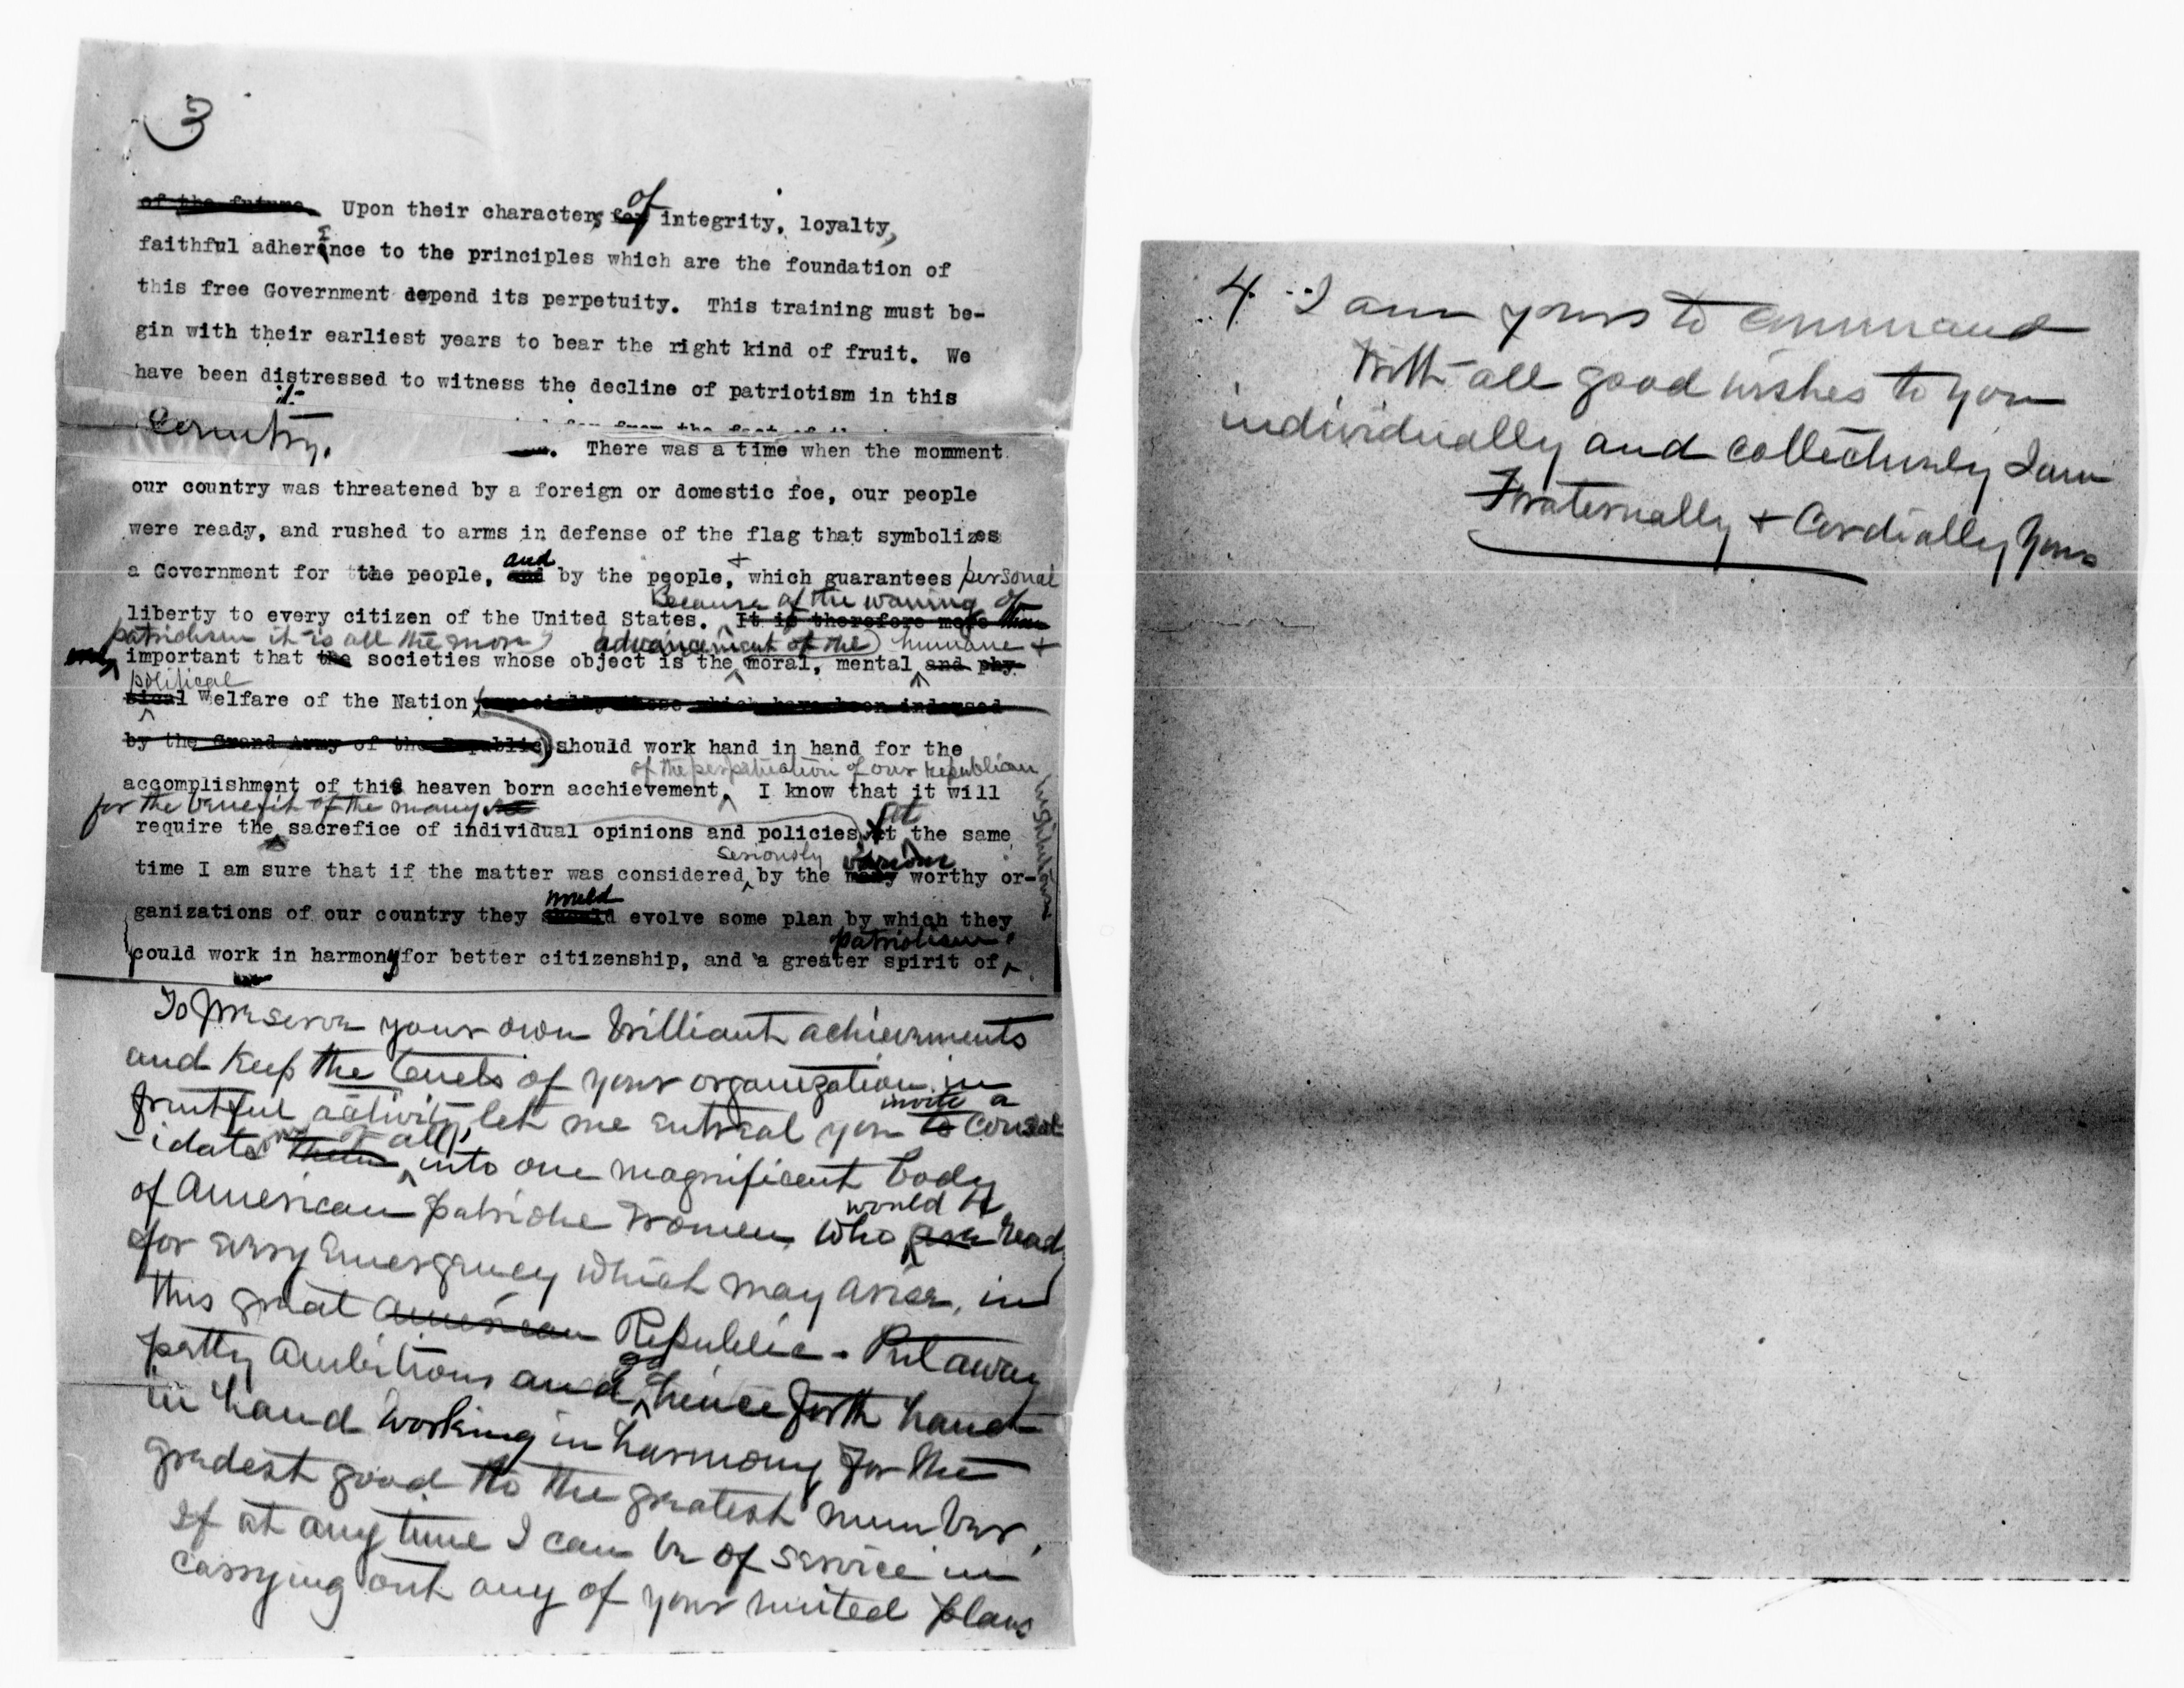 3
of the future. Upon their character, for of integrity, loyalty,
faithful adherence to the principles which are the foundation of
this free Government depend its perpetuity. This training must be-
gin with their earliest years to bear the right kind of fruit. We
have been distressed to witness the decline of patriotism in this
Country.
There was a time when the momment
our country was threatened by a foreign or domestic foe, our people
were ready, and rushed to arms in defense of the flag that symbolizes
and
a Government for the people, and by the people, + which guarantees personal
Because of the waning of
liberty to every citizen of the United States. It is therefore more than
patriotism it is all the more advancement of the humane +
important that the societies whose object is the moral, mental and phy-
political
sical welfare of the Nation, especially those which have been indorsed
by the Grand Army of the Republic) should work hand in hand for the
of the perpetuation of our Republican institutions
accomplishment of this heaven born acchievement. I know that it will
for the benefit of the many
require the sacrefice of individual opinions and policies, At the same
seriously various
time I am sure that if the matter was considered by the many worthy or-
would
ganizations of our country they should evolve some plan by which they
patriotism.
could work in harmony for better citizenship, and a greater spirit of
To preserve your own brilliant achievments
and keep the tenets of your organization in
invite a
fruitful activity let me entreal you to consol
of all,
-idate them into one magnificent body
would be
of American patriotic women, who are ready
for every emergency which may arise, in
this great American Republic - Put away
go
petty ambitions and henceforth hand
in hand working in harmony for the
gredest good to the greatest number.
If at any time I can be of service in
carrying out any of your united plans
4. I am yours to command
With all good wishes to you
individually and collectively I am
Fraternally + Cordially Yours